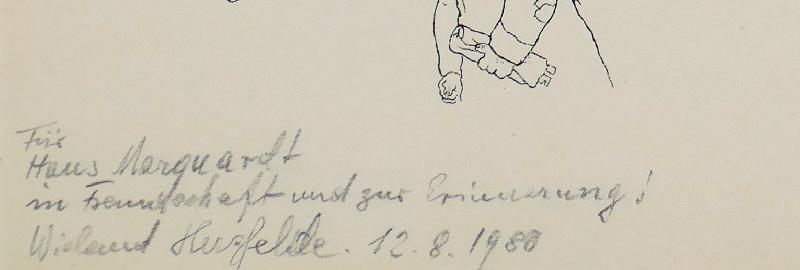 Für
Hans Marquardt
in Freundschaft und zur Erinnerung!
Wieland Herzfelde. 12.8.1980